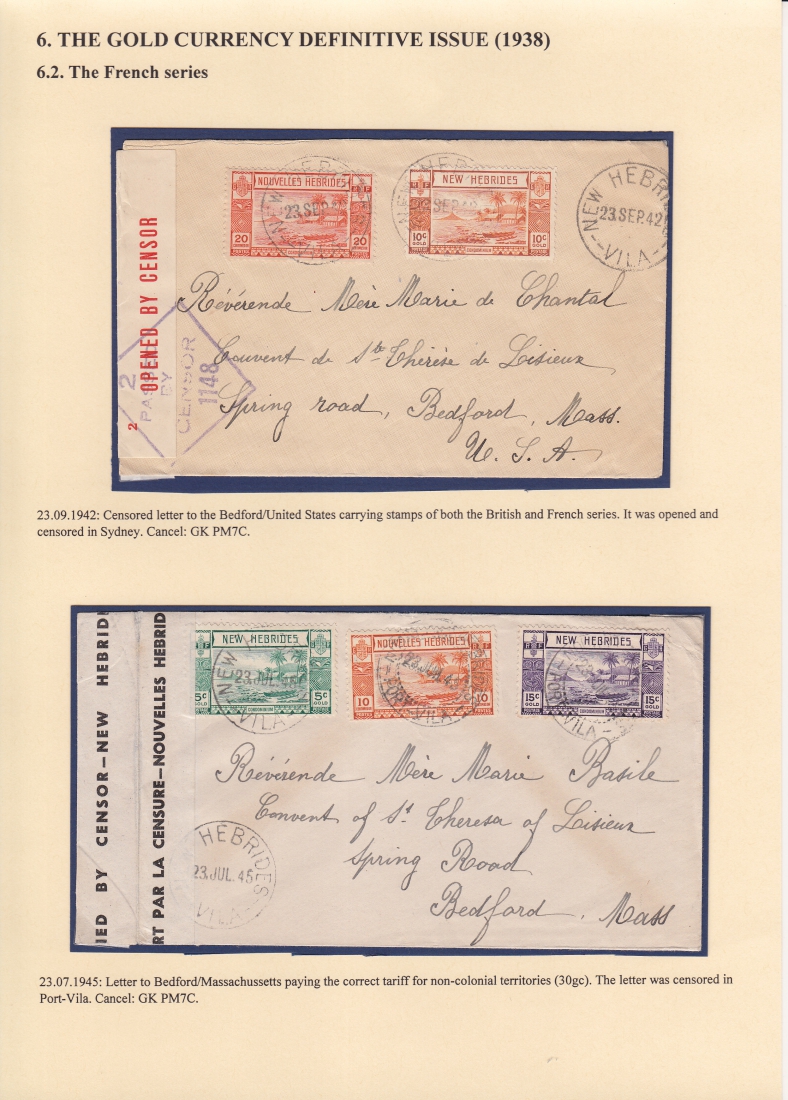 6. THE GOLD CURRENCY DEFINITIVE ISSUE (1938)
6.2. The French series
NOUVELLES HEBRIDES
20
20
CONDOMINIUM
NEW HEBRIDES
10c GOLD
10c GOLD
CONDOMINIUM
NEW HEBRI
23.SEP.42
VILA
23.SEP.42
NEW HEBRID
23.SEP.42
VILA
OPENED BY CENSOR
2
2
PASSED
BY
CENSOR
1148
Révérende Mère Marie de Chantal
Couvent de Ste Thérèse de Lisieux
Spring road, Bedford, Mass.
U. S. A.
23.09.1942: Censored letter to the Bedford/United States carrying stamps of both the British and French series. It was opened and
censored in Sydney. Cancel: GK PM7C.
IED BY CENSOR—NEW HEBRIDE
RT PAR LA CENSURE—NOUVELLES HEBRID
NEW HEBRIDES
5c GOLD
5c GOLD
CONDOMINIUM
NEW
23.JUL.45
VILA
NOUVELLES HEBRIDES
10
10
CONDOMINIUM
23.JUL.45
VILA
NEW HEBRIDES
15c GOLD
15c GOLD
CONDOMINIUM
VILA
HEBRIDES
23.JUL.45
VILA
Révérende Mère Marie Basile
Convent of St Theresa of Lisieux
Spring Road
Bedford, Mass
23.07.1945: Letter to Bedford/Massachussetts paying the correct tariff for non-colonial territories (30gc). The letter was censored in
Port-Vila. Cancel: GK PM7C.